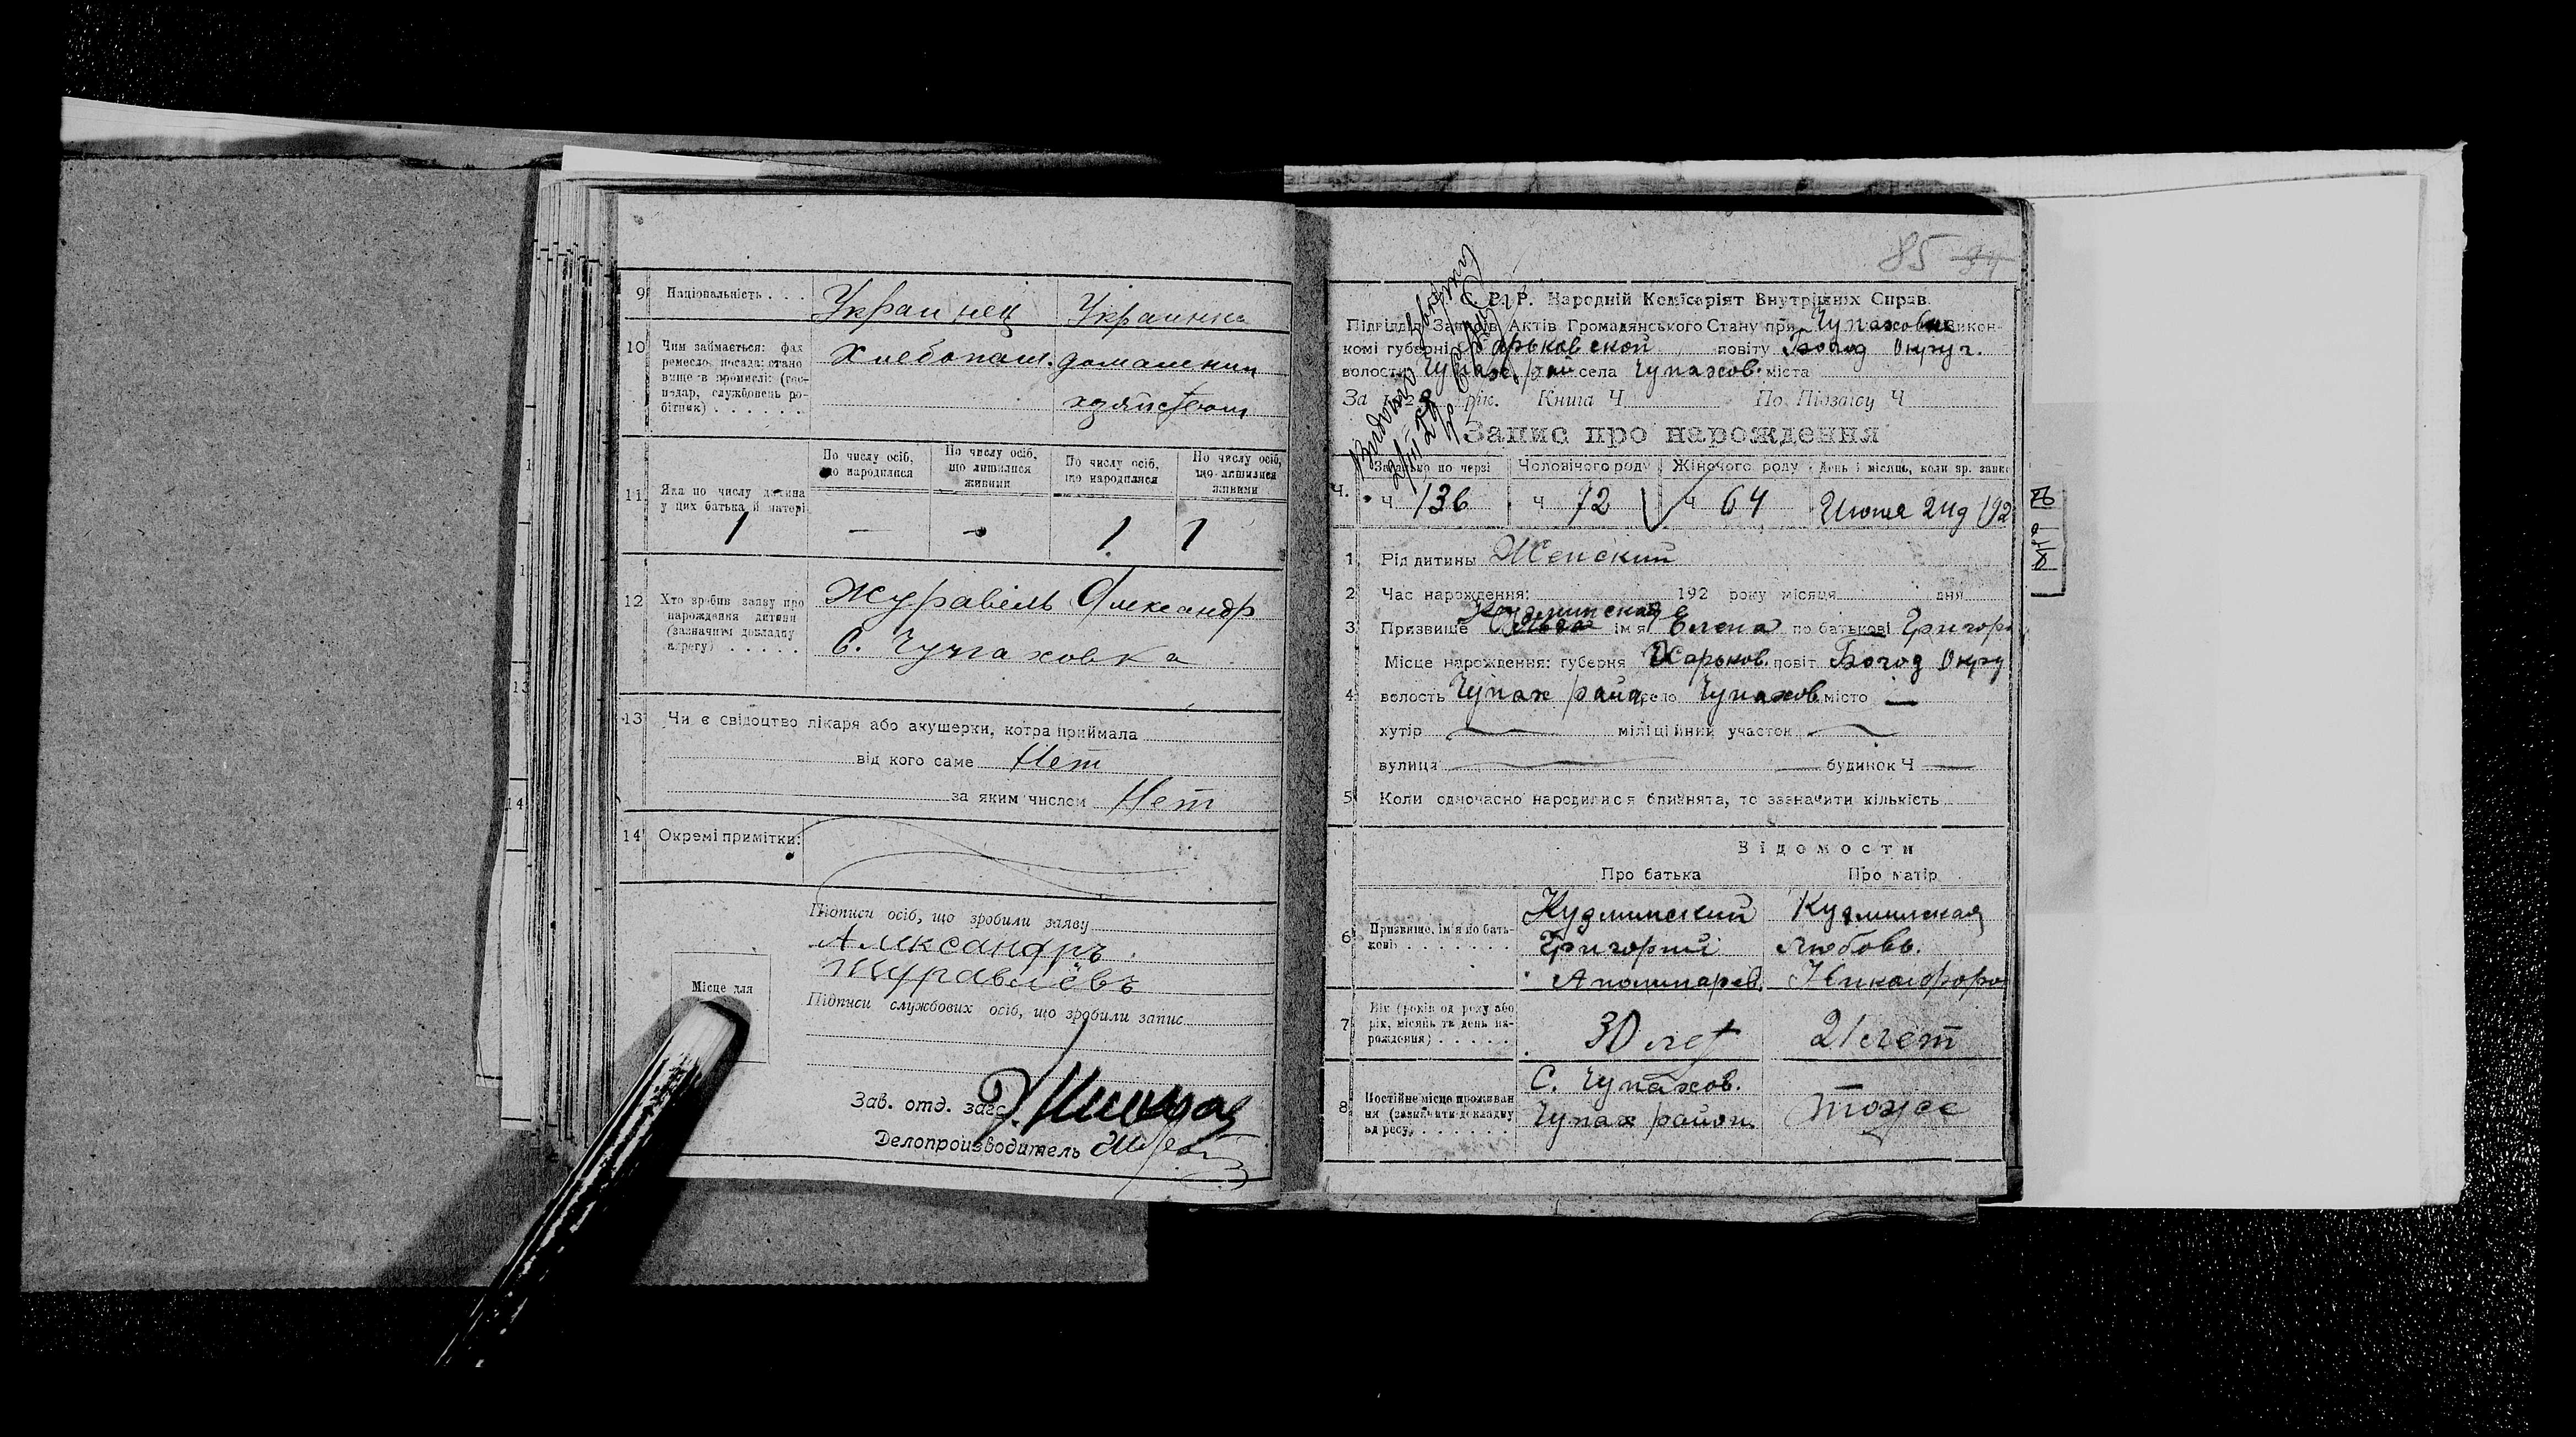 9 Національність . . . Украинец Украинка
10 Чим займається: фах ремесло, посада: стано вище в промислі: (гос- подар, службовець ро- бітник) . . . . . . .
Хлебопаш. домашним
хозяйством
11 Яка по числу дитина у цих батька й матері 1
По числу осіб, що народилися
По числу осіб, що лишилися живими
По числу осіб, що народилися
По числу осіб, що лишилися живими
— — 1 1
12 Хто зробив заяву про народження дитини (зазначити докладну адресу) . . . . .
Журавель Александр
С. Чупаховка
13 Чи є свідоцтво лікаря або акушерки, котра приймала
від кого саме Нет
за яким числом Нет
14 Окремі примітки:
Підписи осіб, що зробили заяву
Александръ
Журавлёвъ
Місце для
Підписи службових осіб, що зробили запис
Зав. отд. загс
Делопроизводитель
1
1
13
14
85 84
С. Р. Р. Народній Комісаріят Внутрішніх Справ.
Підвідділ Записів Актів Громадянського Стану при Чупаховск Викон-
комі губернії Харьковской повіту Богод Округ.
волости Чупах. рай села Чупахов. міста
За 192 рік. Книга Ч По Підзапсу Ч
Запис про народження
Загально по черзі Чоловічого роду Жіночого роду День і місяць, коли зр. запис
Ч. Ч 136 Ч 72 Ч 64 Июня 2 дн 192
1 Рід дитины Женский
2 Час народження: 192 року місяця дня
Кудминская
3 Прязвище імя Елена по батькові Григор
Місце народження: губерня Харьков повіт Богод Округ
4 волость Чупах район село Чупахов місто —
хутір міліційний участок
вулиця будинок Ч —
5 Коли одночасно народилися близнята, то зазначити кількість
Відомости
Про батька Про матір
6 Призвище, ім'я по бать- кові . . . . . . . .
Кудминский Кудминская
Григорий Любовь.
Аполинарев. Никанфоро
7 Вік (років од року або рік, місяць та день на- родження) . . . . .
30 лет 21 лет
8 Постійне місце проживан ня (зазначити докладну адресу) . . . . . . .
С. Чупахов.
Чупах район. тоже